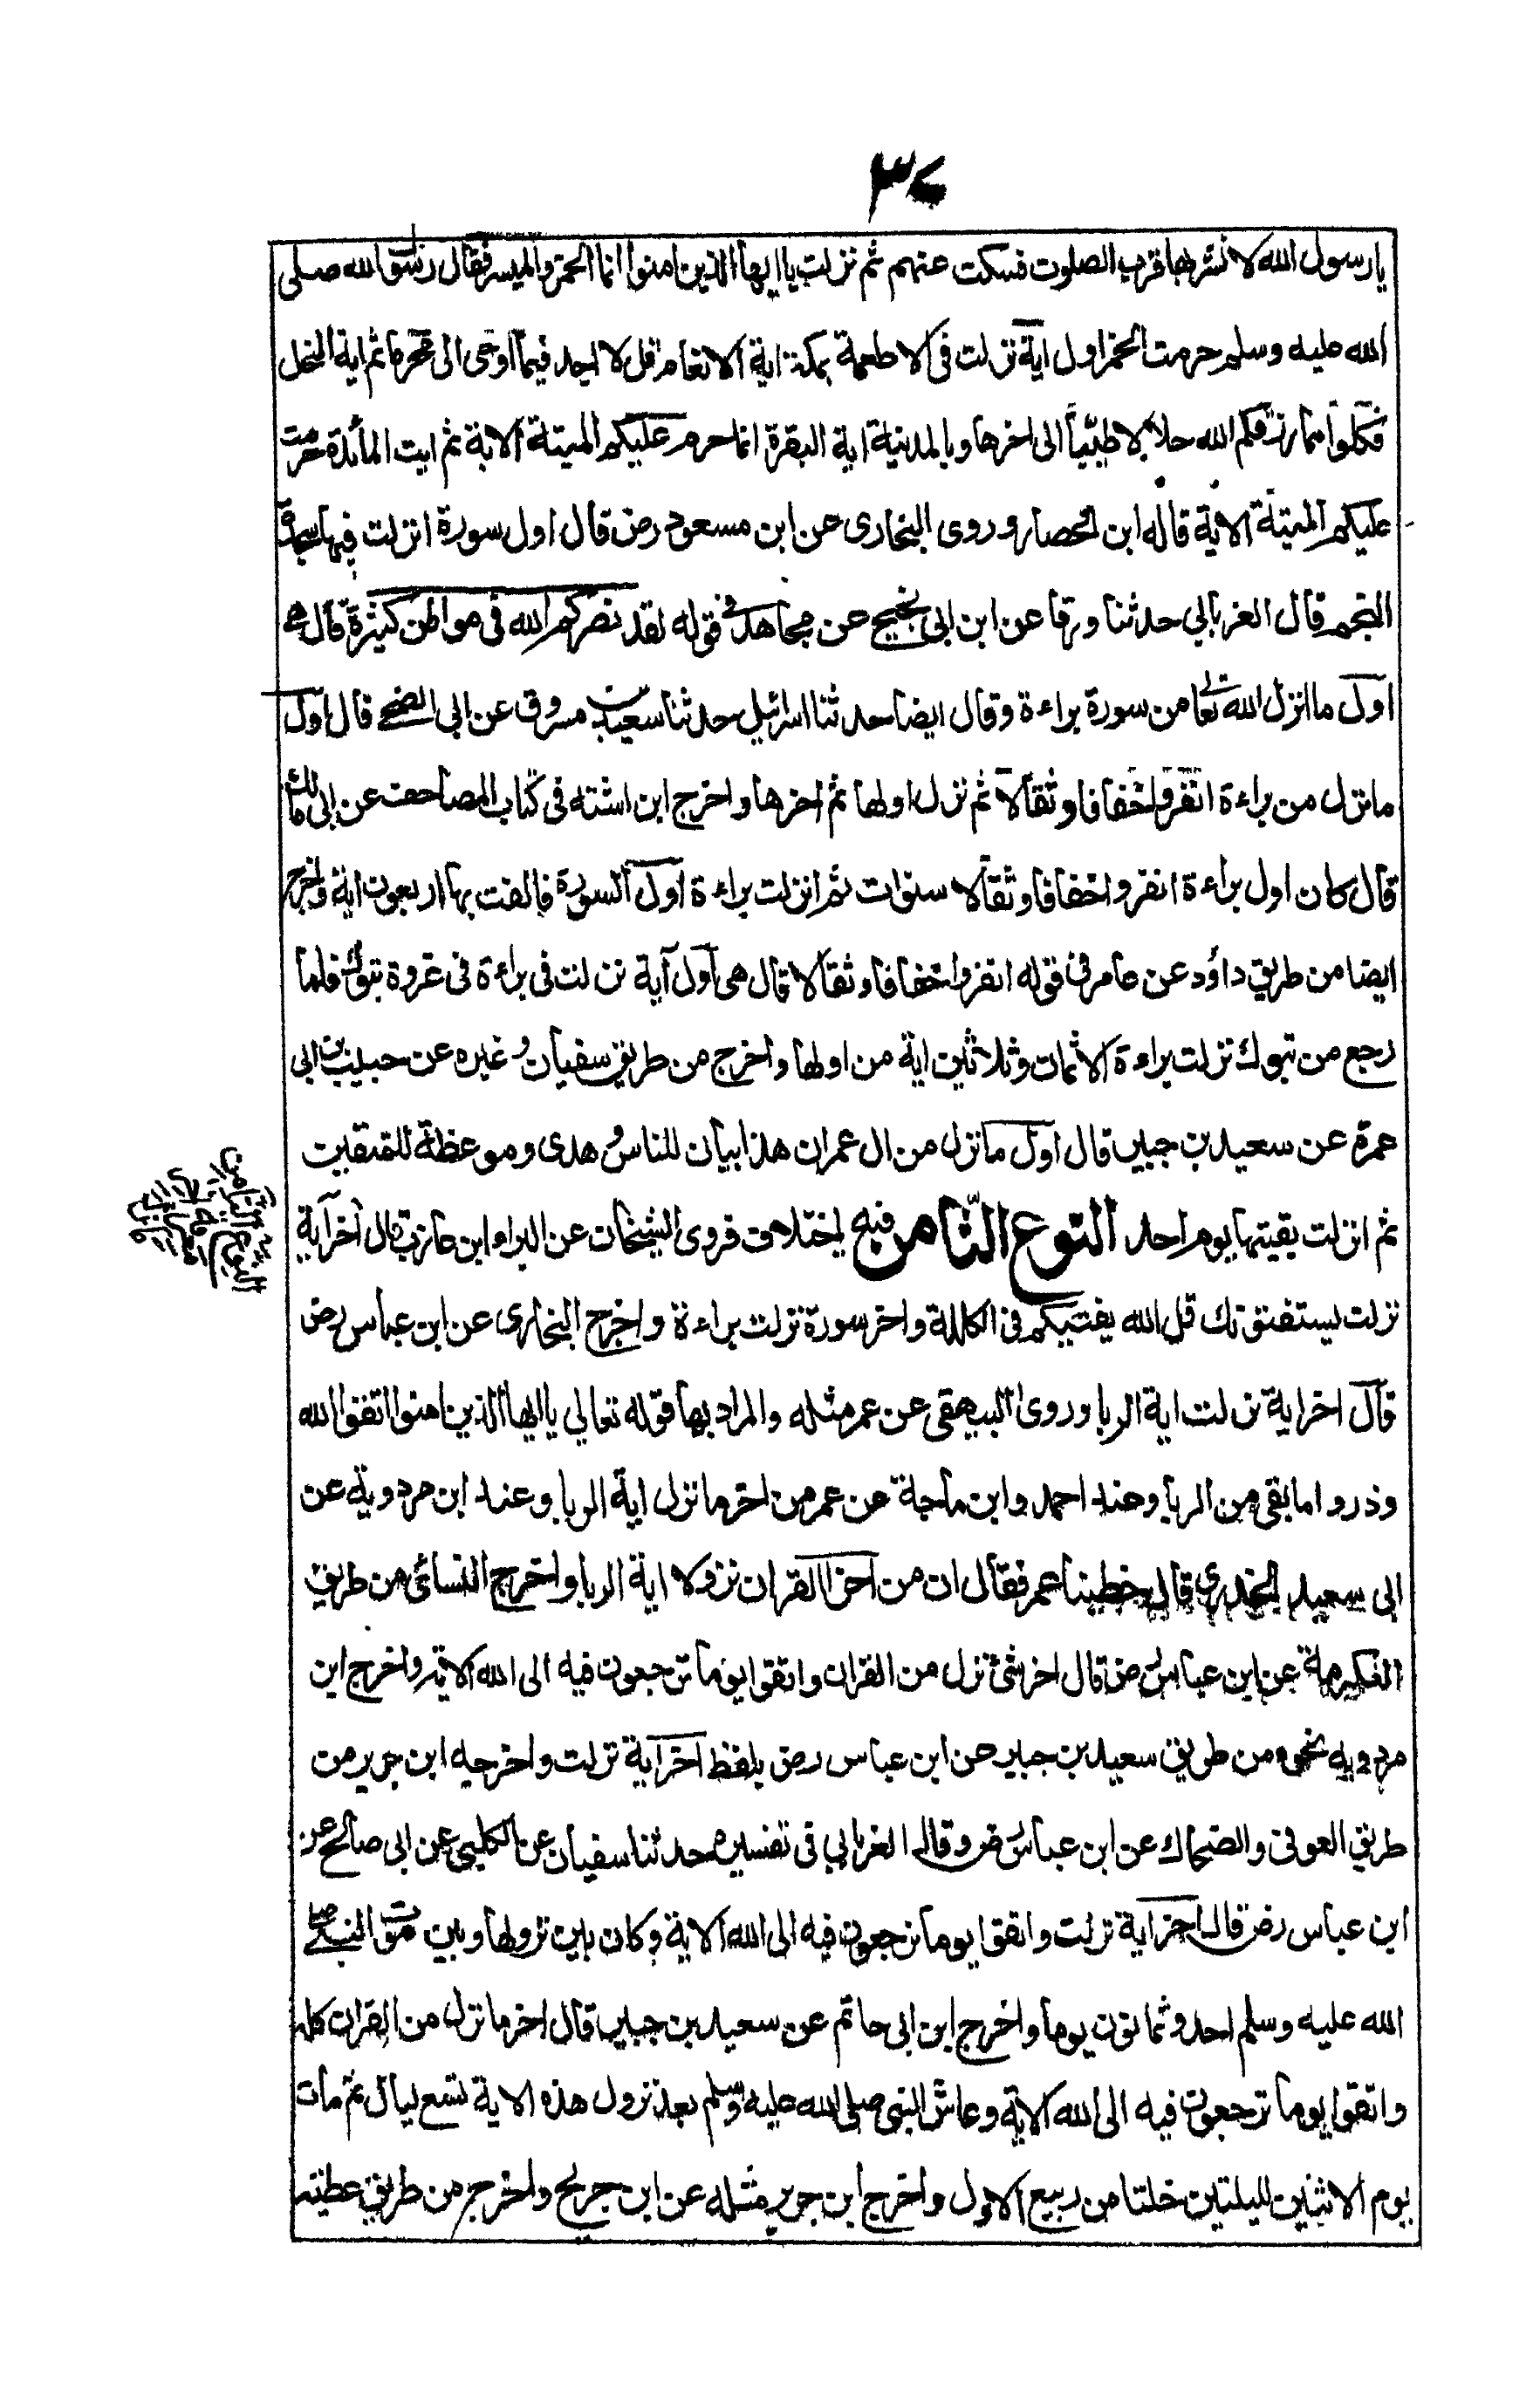 ٣٧
يا رسول الله لا نشربها قرب الصلوت فسكت عنهم ثم نزلت يا ايها الذين امنوا انما الخمر والميسر فقال رسول الله صلى
الله عليه وسلم حرمت الخمر اول اية نزلت فى الاطعمة بمكة اية الانعام قل لا اجد فيما اوحى الى محرما ثم اية النحل
فكلوا مما رزقكم الله حلالا طيبا الى اخرها وبالمدينة اية البقرة انما حرم عليكم الميتة الاية ثم ايت المائدة حرمت
عليكم الميتة الاية قاله ابن الحصار وروى البخارى عن ابن مسعود رض قال اول سورة انزلت فيها سجدة
النجم قال الغريابي حدثنا ورقا عن ابن ابى نجيح عن مجاهد فى قوله لقد نصركم الله فى مواطن كثيرة قال هى
اول ما انزل الله تعالى من سورة براءة وقال ايضا حدثنا اسرائيل حدثنا سعيد بن مسروق عن ابى الضحى قال اول
ما نزل من براءة انفروا خفافا وثقالا ثم نزل اولها ثم اخرها واخرج ابن اشته فى كتاب المصاحف عن ابى مالك
قال كان اول براءة انفروا خفافا وثقالا سنوات ثم انزلت براءة اول السورة فالفت بها اربعون اية واخرج
ايضا من طريق داؤد عن عامر فى قوله انفروا خفافا وثقالا قال هى اول آية نزلت فى براءة فى غزوة تبوك فلما
رجع من تبوك نزلت براءة الا ثمان وثلاثين اية من اولها واخرج من طريق سفيان وغيره عن حبيب بن ابى
عمرة عن سعيد بن جبير قال اول ما نزل من ال عمران هذا بيان للناس وهدى وموعظة للمتقين
ثم انزلت بقيتها يوم احد النوع الثامن فيه اختلاف فروى الشيخان عن البراء ابن عازب قال آخر آية
نزلت يستفتونك قل الله يفتيكم فى الكللة واخر سورة نزلت براءة واخرج البخارى عن ابن عباس رض
قال اخر اية نزلت اية الربا وروى البيهقى عن عمر مثله والمراد بها قوله تعالى يا ايها الذين امنوا اتقوا الله
وذروا ما بقى من الربا وعند احمد وابن ماجة عن عمر من اخر ما نزل اية الربا وعند ابن مردوية عن
ابى سعيد الخدرى قال خطبنا عمر فقال ان من اخر القران نزولا اية الربا واخرج النسائى من طريق
العكرمة عن ابن عباس رض قال اخر شئ نزل من القران واتقوا يوما ترجعون فيه الى الله الاية واخرج ابن
مردويه نحوه من طريق سعيد بن جبير عن ابن عباس رض بلفظ اخر اية نزلت واخرجه ابن جرير من
طريق العوفى والضحاك عن ابن عباس رض وقال الغريابي فى تفسيره حدثنا سفيان عن الكلبى عن ابى صالح عن
ابن عباس رض قال اخر اية نزلت واتقوا يوما ترجعون فيه الى الله الاية وكان بين نزولها وبين موت النبى صلى
الله عليه وسلم احد وثمانون يوما واخرج ابن ابى حاتم عن سعيد بن جبير قال اخر ما نزل من القران كله
واتقوا يوما ترجعون فيه الى الله الاية وعاش النبى صلى الله عليه وسلم بعد نزول هذه الاية تسع ليال ثم مات
يوم الاثنين لليلتين خلتا من ربيع الاول واخرج ابن جرير مثله عن ابن جريج واخرج من طريق عطية
النوع الثامن